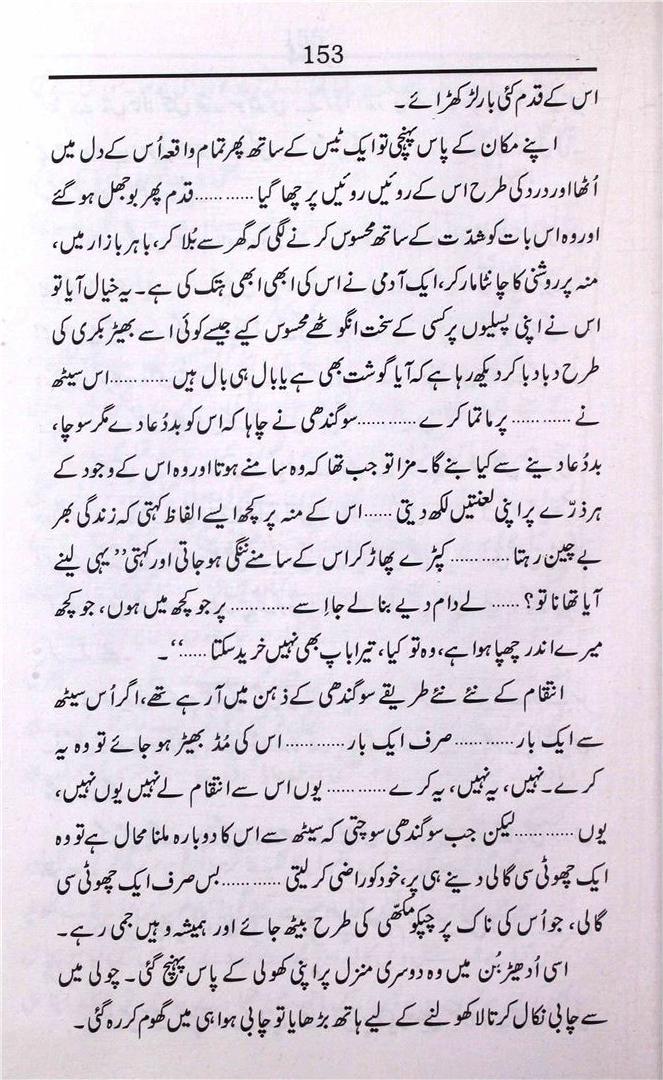 153
اس کے قدم کئی بار لڑکھڑائے۔
اپنے مکان کے پاس پہنچی تو ایک ٹیس کے ساتھ پھر تمام واقعہ اُس کے دل میں
اُٹھا اور درد کی طرح اس کے روئیں روئیں پر چھا گیا ............ قدم پھر بوجھل ہو گئے
اور وہ اس بات کو شدّت کے ساتھ محسوس کرنے لگی کہ گھر سے بُلا کر، باہر بازار میں،
منہ پر روشنی کا چانٹا مار کر، ایک آدمی نے اس کی ابھی ابھی ہتک کی ہے۔ یہ خیال آیا تو
اس نے اپنی پسلیوں پر کسی کے سخت انگوٹھے محسوس کیے جیسے کوئی اسے بھیڑ بکری کی
طرح دبا دبا کر دیکھ رہا ہے کہ آیا گوشت بھی ہے یا بال ہی بال ہیں ............ اس سیٹھ
نے ............ پرماتما کرے ............ سوگندھی نے چاہا کہ اس کو بددُعا دے مگر سوچا،
بددُعا دینے سے کیا بنے گا۔ مزا تو جب تھا کہ وہ سامنے ہوتا اور وہ اس کے وجود کے
ہر ذرّے پر اپنی لعنتیں لکھ دیتی ...... اس کے منہ پر کچھ ایسے الفاظ کہتی کہ زندگی بھر
بے چین رہتا ............ کپڑے پھاڑ کر اس کے سامنے ننگی ہو جاتی اور کہتی ’’یہی لینے
آیا تھا نا تو؟ ...... لے دام دیے بنا لے جا اِسے ............ پر جو کچھ میں ہوں، جو کچھ
میرے اندر چھپا ہوا ہے، وہ تو کیا، تیرا باپ بھی نہیں خرید سکتا ......‘‘۔
انتقام کے نئے نئے طریقے سوگندھی کے ذہن میں آ رہے تھے، اگر اُس سیٹھ
سے ایک بار ............ صرف ایک بار ............ اس کی مُڈ بھیڑ ہو جائے تو وہ یہ
کرے۔ نہیں، یہ نہیں، یہ کرے ............ یوں اس سے انتقام لے نہیں یوں نہیں،
یوں ............ لیکن جب سوگندھی سوچتی کہ سیٹھ سے اس کا دوبارہ ملنا محال ہے تو وہ
ایک چھوٹی سی گالی دینے ہی پر، خود کو راضی کر لیتی ............ بس صرف ایک چھوٹی سی
گالی، جو اُس کی ناک پر چپکو مکھّی کی طرح بیٹھ جائے اور ہمیشہ وہیں جمی رہے۔
اسی اُدھیڑ بُن میں وہ دوسری منزل پر اپنی کھولی کے پاس پہنچ گئی۔ چولی میں
سے چابی نکال کر تالا کھولنے کے لیے ہاتھ بڑھایا تو چابی ہوا ہی میں گھوم کر رہ گئی۔